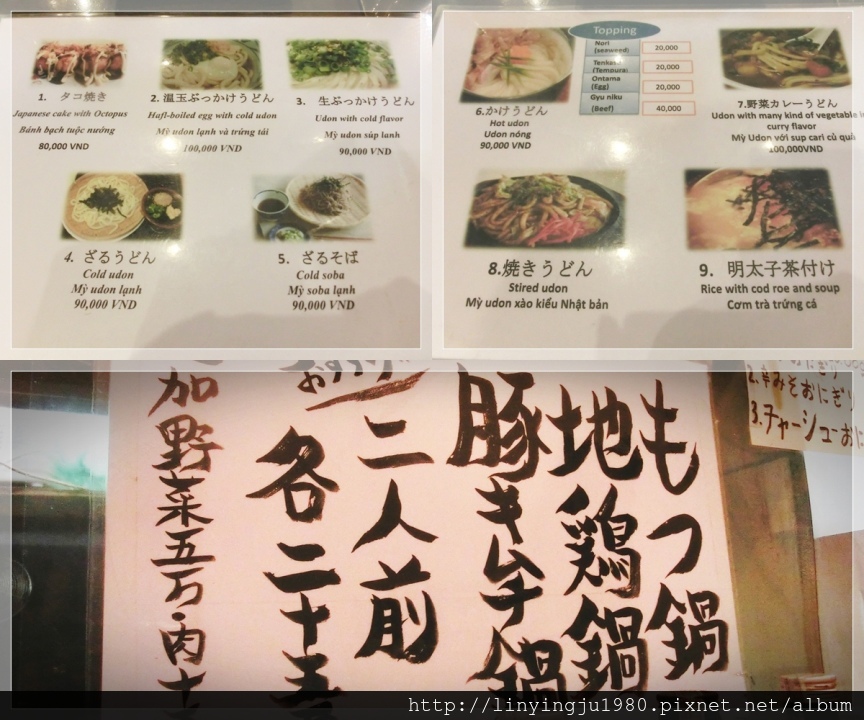 1. タコ焼き
Japanese cake with Octopus
Bánh bạch tuộc nướng
80,000 VND
2. 温玉ぶっかけうどん
Hafl-boiled egg with cold udon
Mỳ udon lạnh và trứng tái
100,000 VND
3. 生ぶっかけうどん
Udon with cold flavor
Mỳ udon súp lanh
90,000 VND
4. ざるうどん
Cold udon
Mỳ udon lạnh
90,000 VND
5. ざるそば
Cold soba
Mỳ soba lạnh
90,000 VND
Topping
Nori
(seaweed) 20,000
Tenkasu
(Tempura) 20,000
Ontama
(Egg) 20,000
Gyu niku
(Beef) 40,000
6.かけうどん
Hot udon
Udon nóng
90,000 VND
7.野菜カレーうどん
Udon with many kind of vegetable in
curry flavor
Mỳ Udon với sup cari củ quả
100,000VND
8.焼きうどん
Stired udon
Mỳ udon xào kiểu Nhật bản
9. 明太子茶付け
Rice with cod roe and soup
Cơm trà trứng cá
もつ鍋
地鶏鍋
豚キムチ鍋
二人前
各二十五
加野菜五万・肉十
2.辛みそおにぎり
3.チャーシューおに
http://linyingju1980.pixnet.net/album